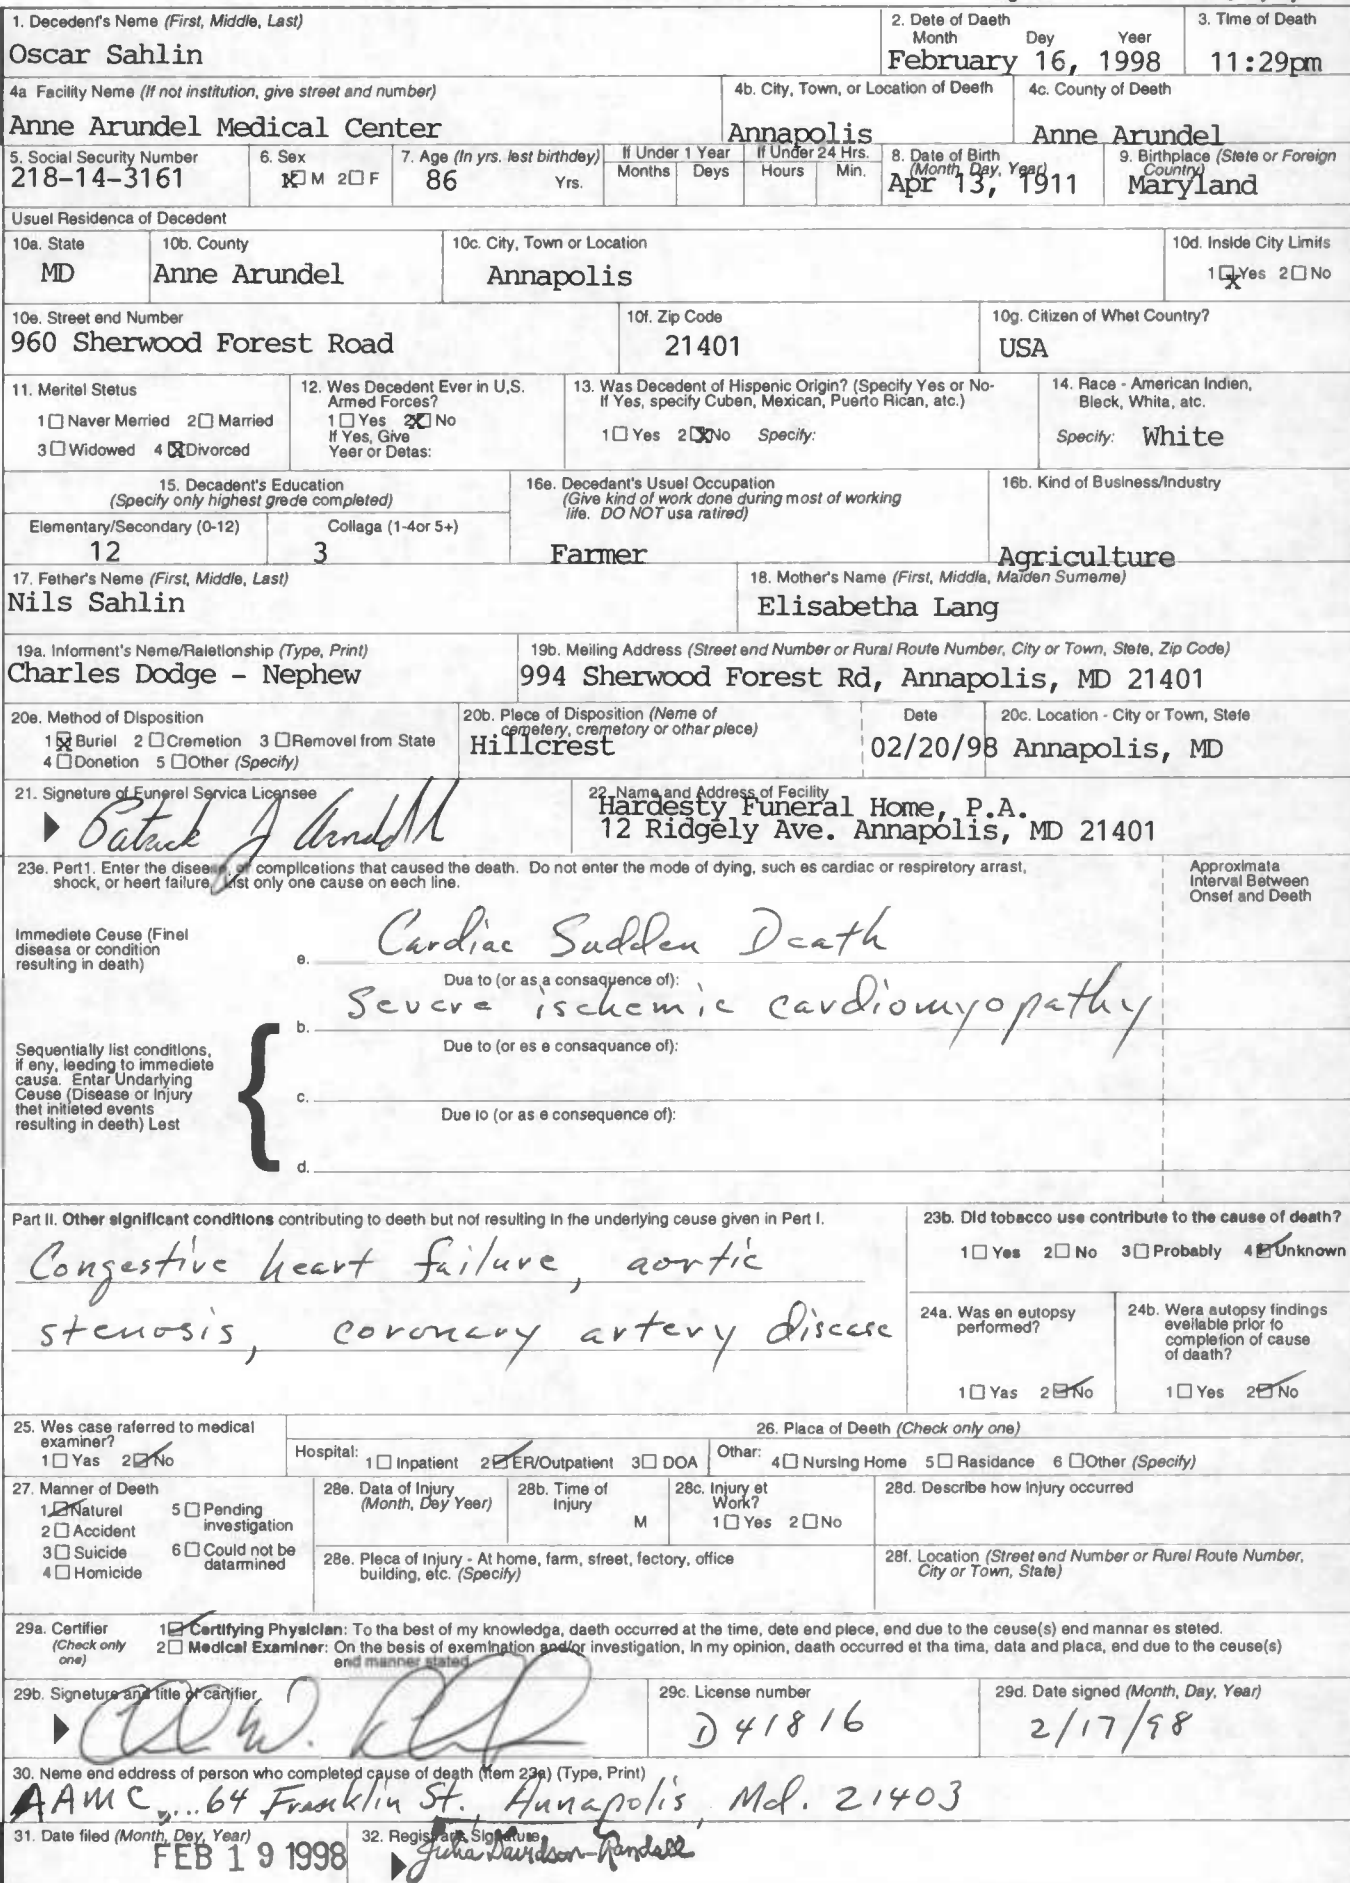 1. Decedent's Name (First, Middle, Last)
Oscar Sahlin
2. Date of Death
Month Day Year
February 16, 1998
3. Time of Death
11:29pm
4a Facility Name (If not institution, give street and number)
Anne Arundel Medical Center
4b. City, Town, or Location of Death
Annapolis
4c. County of Death
Anne Arundel
5. Social Security Number
218-14-3161
6. Sex
1☒ M 2☐ F
7. Age (In yrs. last birthday)
86 Yrs.
If Under 1 Year
Months Days
If Under 24 Hrs.
Hours Min.
8. Date of Birth
(Month, Day, Year)
Apr 13, 1911
9. Birthplace (State or Foreign
Country)
Maryland
Usual Residence of Decedent
10a. State
MD
10b. County
Anne Arundel
10c. City, Town or Location
Annapolis
10d. Inside City Limits
1☒ Yes 2☐ No
10e. Street and Number
960 Sherwood Forest Road
10f. Zip Code
21401
10g. Citizen of What Country?
USA
11. Marital Status
1☐ Never Married 2☐ Married
3☐ Widowed 4☒ Divorced
12. Was Decedent Ever in U.S.
Armed Forces?
1☐ Yes 2☒ No
If Yes, Give
Year or Dates:
13. Was Decedent of Hispanic Origin? (Specify Yes or No-
If Yes, specify Cuban, Mexican, Puerto Rican, etc.)
1☐ Yes 2☒ No Specify:
14. Race - American Indian,
Black, White, etc.
Specify: White
15. Decedent's Education
(Specify only highest grade completed)
Elementary/Secondary (0-12)
12
College (1-4or 5+)
3
16a. Decedent's Usual Occupation
(Give kind of work done during most of working
life. DO NOT use retired)
Farmer
16b. Kind of Business/Industry
Agriculture
17. Father's Name (First, Middle, Last)
Nils Sahlin
18. Mother's Name (First, Middle, Maiden Surname)
Elisabetha Lang
19a. Informant's Name/Relationship (Type, Print)
Charles Dodge - Nephew
19b. Mailing Address (Street and Number or Rural Route Number, City or Town, State, Zip Code)
994 Sherwood Forest Rd, Annapolis, MD 21401
20a. Method of Disposition
1☒ Burial 2☐ Cremation 3☐ Removal from State
4☐ Donation 5☐ Other (Specify)
20b. Place of Disposition (Name of
cemetery, crematory or other place)
Hillcrest
Date
02/20/98
20c. Location - City or Town, State
Annapolis, MD
21. Signature of Funeral Service Licensee
22. Name and Address of Facility
Hardesty Funeral Home, P.A.
12 Ridgely Ave. Annapolis, MD 21401
23a. Part1. Enter the disease, or complications that caused the death. Do not enter the mode of dying, such as cardiac or respiratory arrest,
shock, or heart failure. List only one cause on each line.
Approximate
Interval Between
Onset and Death
Immediate Cause (Final
disease or condition
resulting in death)
a. Cardiac Sudden Death
Due to (or as a consequence of):
b. Severe ischemic cardiomyopathy
Due to (or as a consequence of):
Sequentially list conditions,
if any, leading to immediate
cause. Enter Underlying
Cause (Disease or Injury
that initiated events
resulting in death) Last
c.
Due to (or as a consequence of):
d.
Part II. Other significant conditions contributing to death but not resulting in the underlying cause given in Part I.
Congestive heart failure, aortic
stenosis, coronary artery disease
23b. Did tobacco use contribute to the cause of death?
1☐ Yes 2☐ No 3☐ Probably 4☒ Unknown
24a. Was an autopsy
performed?
1☐ Yes 2☒ No
24b. Were autopsy findings
available prior to
completion of cause
of death?
1☐ Yes 2☒ No
25. Was case referred to medical
examiner?
1☐ Yes 2☒ No
26. Place of Death (Check only one)
Hospital: 1☐ Inpatient 2☒ ER/Outpatient 3☐ DOA
Other: 4☐ Nursing Home 5☐ Residence 6☐ Other (Specify)
27. Manner of Death
1☒ Natural 5☐ Pending
investigation
2☐ Accident
3☐ Suicide 6☐ Could not be
determined
4☐ Homicide
28a. Date of Injury
(Month, Day Year)
28b. Time of
Injury
M
28c. Injury at
Work?
1☐ Yes 2☐ No
28d. Describe how injury occurred
28e. Place of Injury - At home, farm, street, factory, office
building, etc. (Specify)
28f. Location (Street and Number or Rural Route Number,
City or Town, State)
29a. Certifier
(Check only
one)
1☒ Certifying Physician: To the best of my knowledge, death occurred at the time, date and place, and due to the cause(s) and manner as stated.
2☐ Medical Examiner: On the basis of examination and/or investigation, in my opinion, death occurred at the time, date and place, and due to the cause(s)
and manner stated.
29b. Signature and title of certifier
29c. License number
D41816
29d. Date signed (Month, Day, Year)
2/17/98
30. Name and address of person who completed cause of death (Item 23a) (Type, Print)
AAMC, ... 64 Franklin St., Annapolis, Md. 21403
31. Date filed (Month, Day, Year)
FEB 19 1998
32. Registrar's Signature
Julia Davidson-Randall